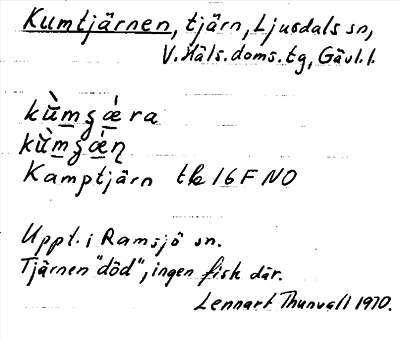 Kumtjärnen, tjärn, Ljusdals sn,
V. Häls. doms. tg, Gävl. l.
kù̀mʂǽra
kù̀mʂǽn̥
Kamptjärn tk 16 F NO
Uppt. i Ramsjö sn.
Tjärnen "död", ingen fisk där.
Lennart Thunvall 1970.